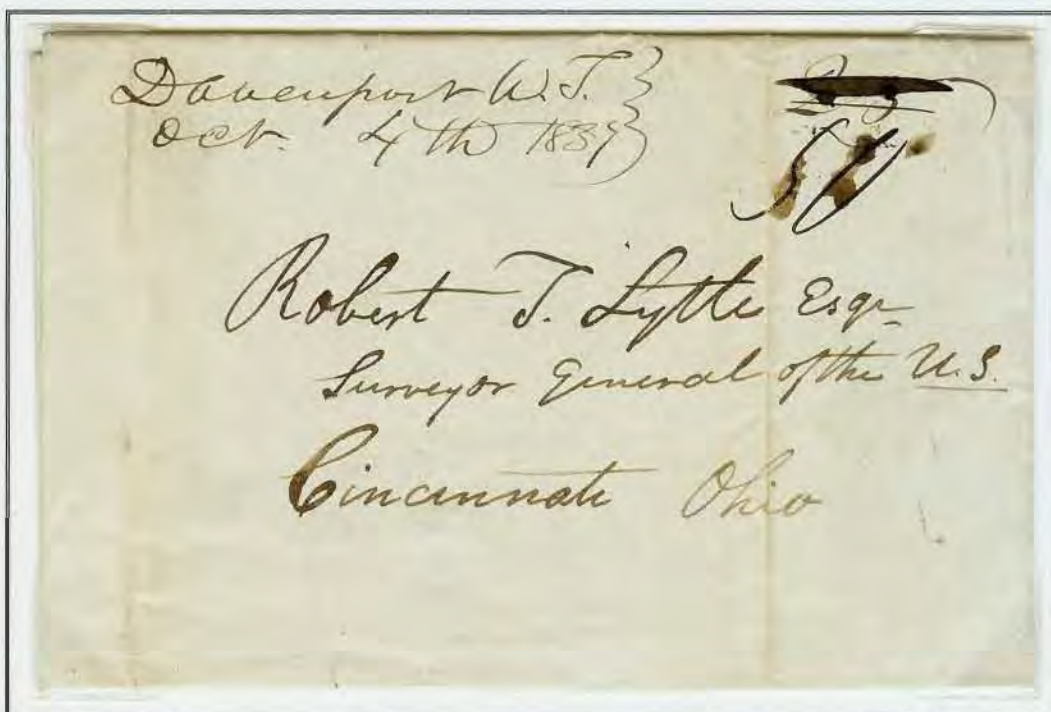 Davenport W.T.
Oct. 4th 1837
50
Robert T. Lytle Esqr
Surveyor General of the U.S.
Cincinnati Ohio